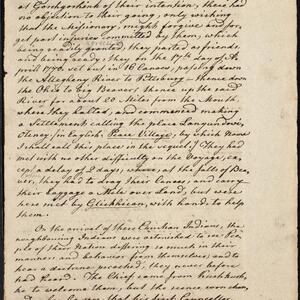 at Goshgoshunk of their intention, these had
no objection to their going, only wishing
that the Missionary, might forgive and for-
get past injuries committed by them, which
being readily granted, they parted as friends,
and being ready, they the 17th day of A-
prill 1770. set out in 16 Canoes, passing down
the Allegheny River to Pittsburg — thence down
the Ohio to big Beaver: thence up the said
River for about 20 Miles from the Mouth,
where they halted, and commenced making
a Settlement calling the place
(in English, Peace Village, by which Name
I shall call this place in the sequel.) They had
met with no other difficulty on the Voyage, ex-
cept a delay of 2 days; where, at the falls of Bea-
ver, they had to drag their Canoes, and carry
their baggage a Mile over land, but were
here met by Glickhican, with hands to help
them.
On the arrival of these Christian Indians, the
neighbouring Indians were astonished to see Peo-
ple of their Nation differing so much in their
manners and behavior from themselves; and to
hear a doctrine preached, they never before
had heard. The Chief came from Kaskaskunk,
to welcome them, but the scene soon chan-
his first Councellor